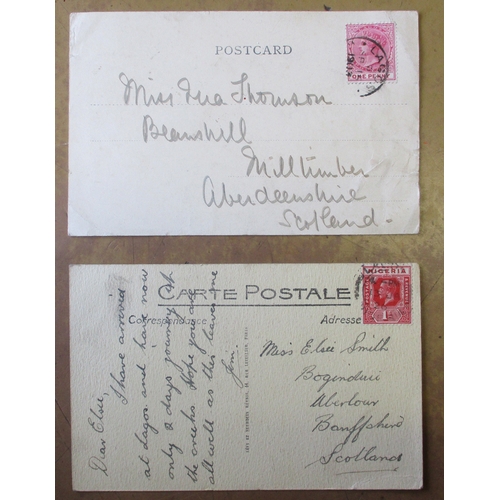 POSTCARD
LAGOS
ONE PENNY
Miss Ina Thomson
Beanshill
Milltimber
Aberdeenshire
Scotland.
CARTE POSTALE
NIGERIA
POSTAGE
1d
Correspondance
Adresse
Dear Elsie,
I have arrived
at Lagos and have now
only 2 days journey at
the creeks. Hope you are
all well as this leaves me
Jim.
Miss Elsie Smith
Aberlour
Banffshire
Scotland